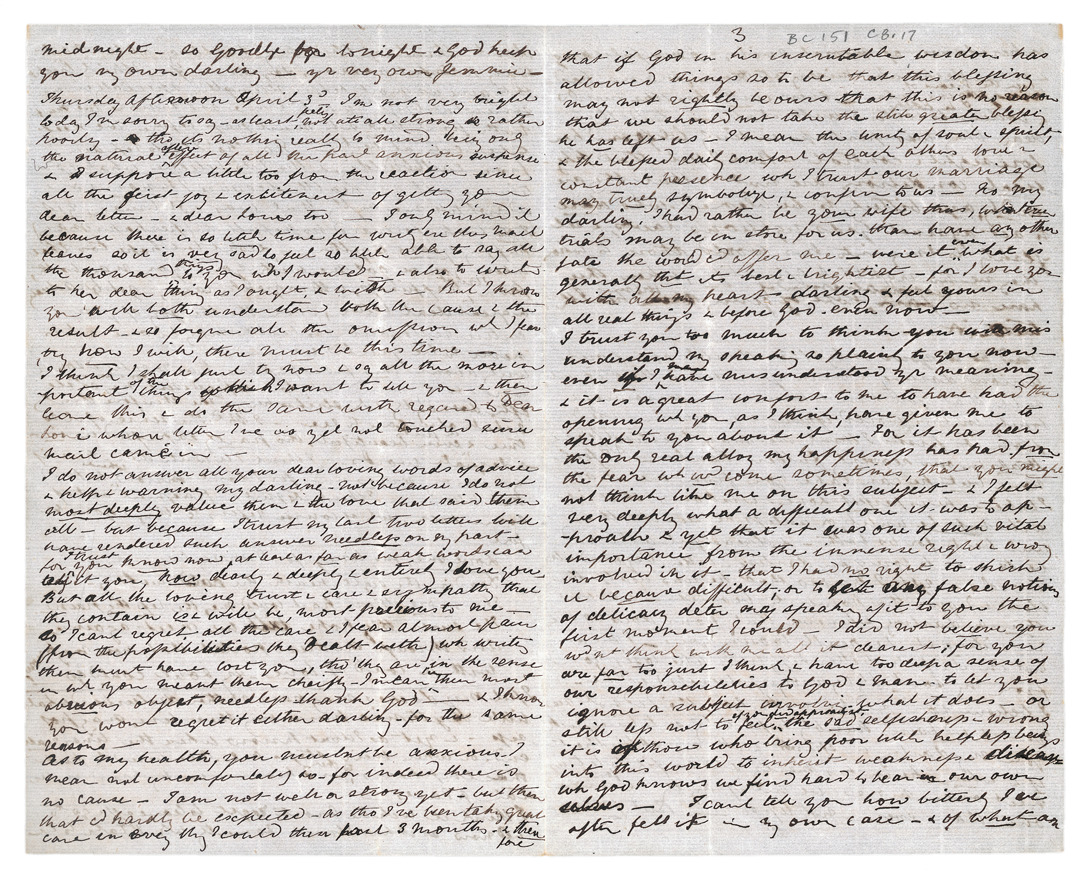 midnight - so Goodbye for tonight & God keep
you my own darling - yr very own Jemmie -
Thursday Afternoon April 3d. I'm not very bright
today I'm sorry to say - at least not at all strong & rather
poorly - tho' its nothing really to mind being only
the natural after effect of all the hard anxious suspense
& I suppose a little too from the reaction since
all the first joy & excitement of getting your
dear letter - & dear Louie's too - I only mind it
because there is so little time for writg ere this mail
leaves so it is very sad to feel so little able to say all
the thousand things to you wh I would - & also to write
to her dear thing as I ought & wish - But I know
you will both understand both the cause & the
result - & so forgive all the omission wh I fear
try how I will, there must be this time -
I think I shall just try now & say all the more im
portant of the things I want to tell you - & then
leave this & do the same with regard to Dear
Louie whose letter I've as yet not touched since
mail came in -
I do not answer all your dear loving words of advice
& help & warning my darling - not because I do not
most deeply value them & the love that said them
all - but because I trust my last two letters will
have rendered such answer needless on my part -
for you I trust know now, at least as far as weak words can
tell it you, how dearly & deeply & entirely I love you
But all the loving trust & care & sympathy that
they contain is & will be most precious to me -
so I cant regret all the care & I fear almost pain
(from the possibilities they dealt with) wh writg
them must have cost you, tho' they are, in the sense
in wh you meant them chiefly - I mean in their most
obvious object, needless thank God - & I know
you wont regret it either darling - for the same
reasons -
As to my health, you mustnt be anxious I
mean not uncomfortably so - for indeed there is
no cause - I am not well or strong yet - but then
that cd hardly be expected - as tho I've been takg great
care in every thg I could these past 3 months - & there
fore
3 BC 151 CB.17
that if God in his inscrutable wisdom has
allowed things so to be that this blessing
may not rightly be ours that this is no reason
that we should not take the still greater blessg
he has left us - I mean the unity of soul & spirit,
& the blessed daily comfort of each others love &
constant presence wh I trust our marriage
may truly symbolize, & confirm to us - No my
darling I had rather be your wife thus, whatever
trials may be in store for us, than have any other
fate the world cd offer me - were it even what is
generally that its best & brightest - for I love you
with all my heart darling & feel yours in
all real things & before God even now -
I trust you too much to think you will mis
understand my speakg so plainly to you now -
even if I may have misunderstood yr meaning -
& it is a great comfort to me to have had the
opening wh you, as I think, have given me to
speak to you about it - For it has been
the only real alloy my happiness has had from
the fear wh wd come sometimes, that you might
not think like me on this subject - & I felt
very deeply what a difficult one it was to ap-
proach & yet that it was one of such vital
importance from the immense right & wrong
involved in it, that I had no right to shirk
it because difficult, or to let any false notion
of delicacy deter my speakg of it to you the
first moment I could - I did not believe you
wdn't think with me abt it dearest, for you
are far too just I think & have too deep a sense of
our responsibilities to God & man - to let you
ignore a subject involving what it does - or
still less not to feel the sad selfishness & wrong
it is of those who bring poor little helpless beings
into this world to inherit weakness & disease
wh God knows we find hard to bear in our own
selves - I cant tell you how bitterly I've
often felt it - in my own case - & of what an